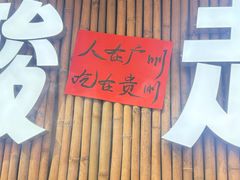 人在广州
吃在贵州
走